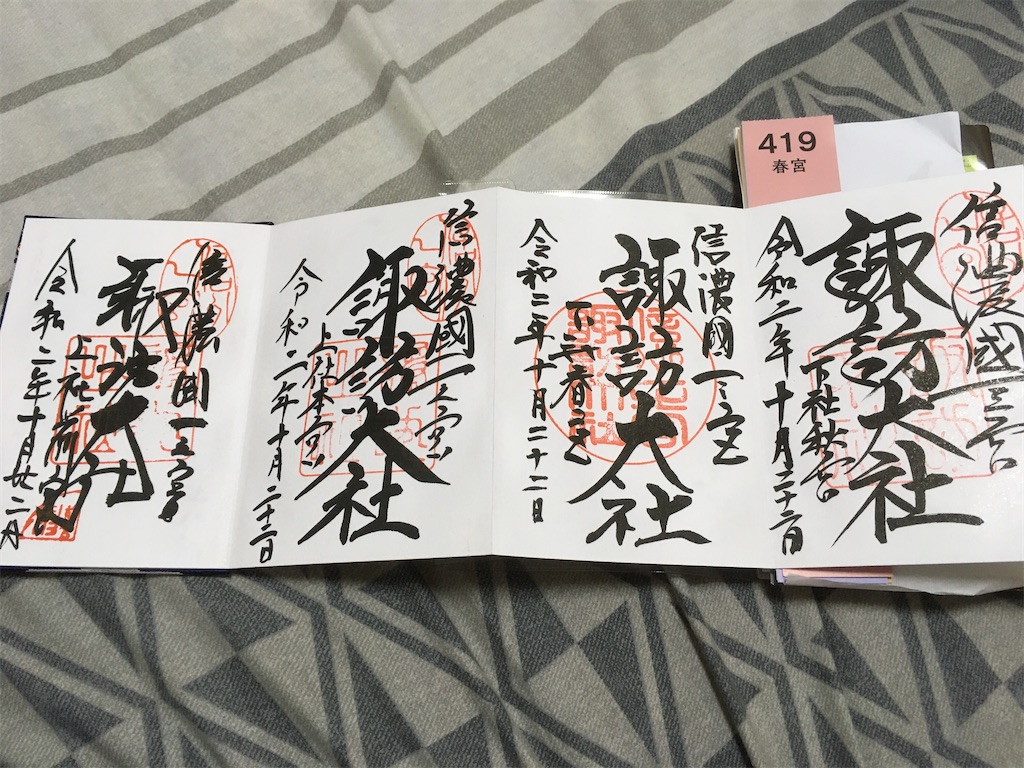 419
春宮
信濃國一之宮
諏訪大社
下社秋宮
令和二年十月二十二日
信濃國一之宮
諏訪大社
下社春宮
令和二年十月二十二日
信濃國一之宮
諏訪大社
上社本宮
令和二年十月二十二日
信濃国一之宮
諏訪大社
上社前宮
令和二年十月廿二日